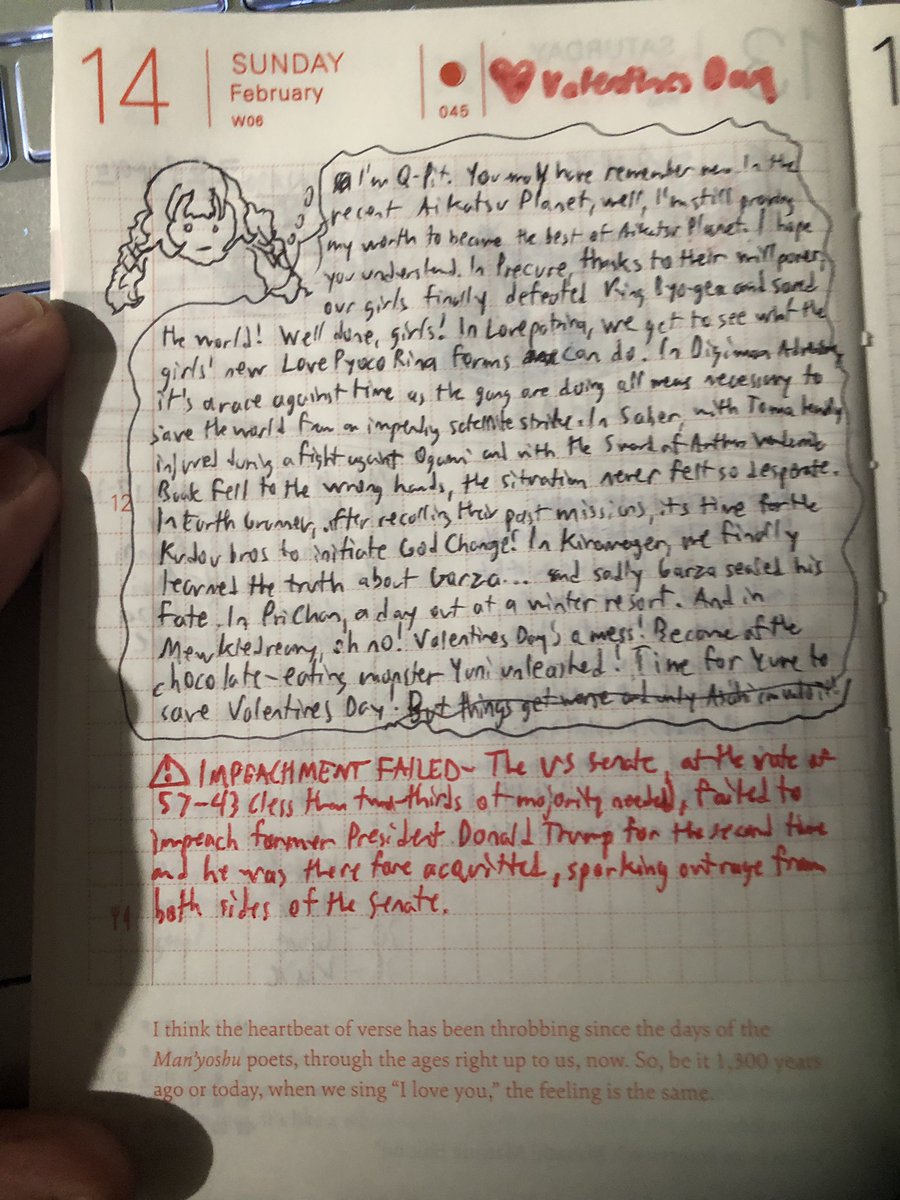 14
SUNDAY
February
W06
045
Valentines Day
I'm Q-Pit. You may have remember me. In the
recent Aikatsu Planet, well, I'm still proving
my worth to become the best of Aikatsu Planet. I hope
you understand. In Precure, thanks to their willpower,
our girls finally defeated King Byo-gen and saved
the world! Well done, girls! In Lovepatrina, we get to see what the
girls' new LovePyoco Rina forms can do. In Digimon Adventure,
it's a race against time as the gang are doing all means necessary to
save the world from an impending satellite strike. In Saber, with Touma
injured during a fight against Ogami and with the Sword of Arthur
Book fell to the wrong hands, the situation never felt so desperate.
In Earth Granner, after recalling their past missions, it's time for the
Kudou bros to initiate God Change! In Kiramager, we finally
learned the truth about Garza... and sadly Garza sealed his
fate. In PriChan, a day out at a winter resort. And in
Mewkledreamy, oh no! Valentines Day's a mess! Because of the
chocolate-eating monster Yuni unleashed! Time for Yume to
save Valentines Day. But things get worse and only
12
IMPEACHMENT FAILED- The US Senate, at the vote of
57-43 (less than two-thirds of majority needed), failed to
impeach former President Donald Trump for the second time
and he was there fore acquitted, sparking outrage from
both sides of the Senate.
I think the heartbeat of verse has been throbbing since the days of the
Man'yoshu poets, through the ages right up to us, now. So, be it 1,300 years
ago or today, when we sing “I love you,” the feeling is the same.